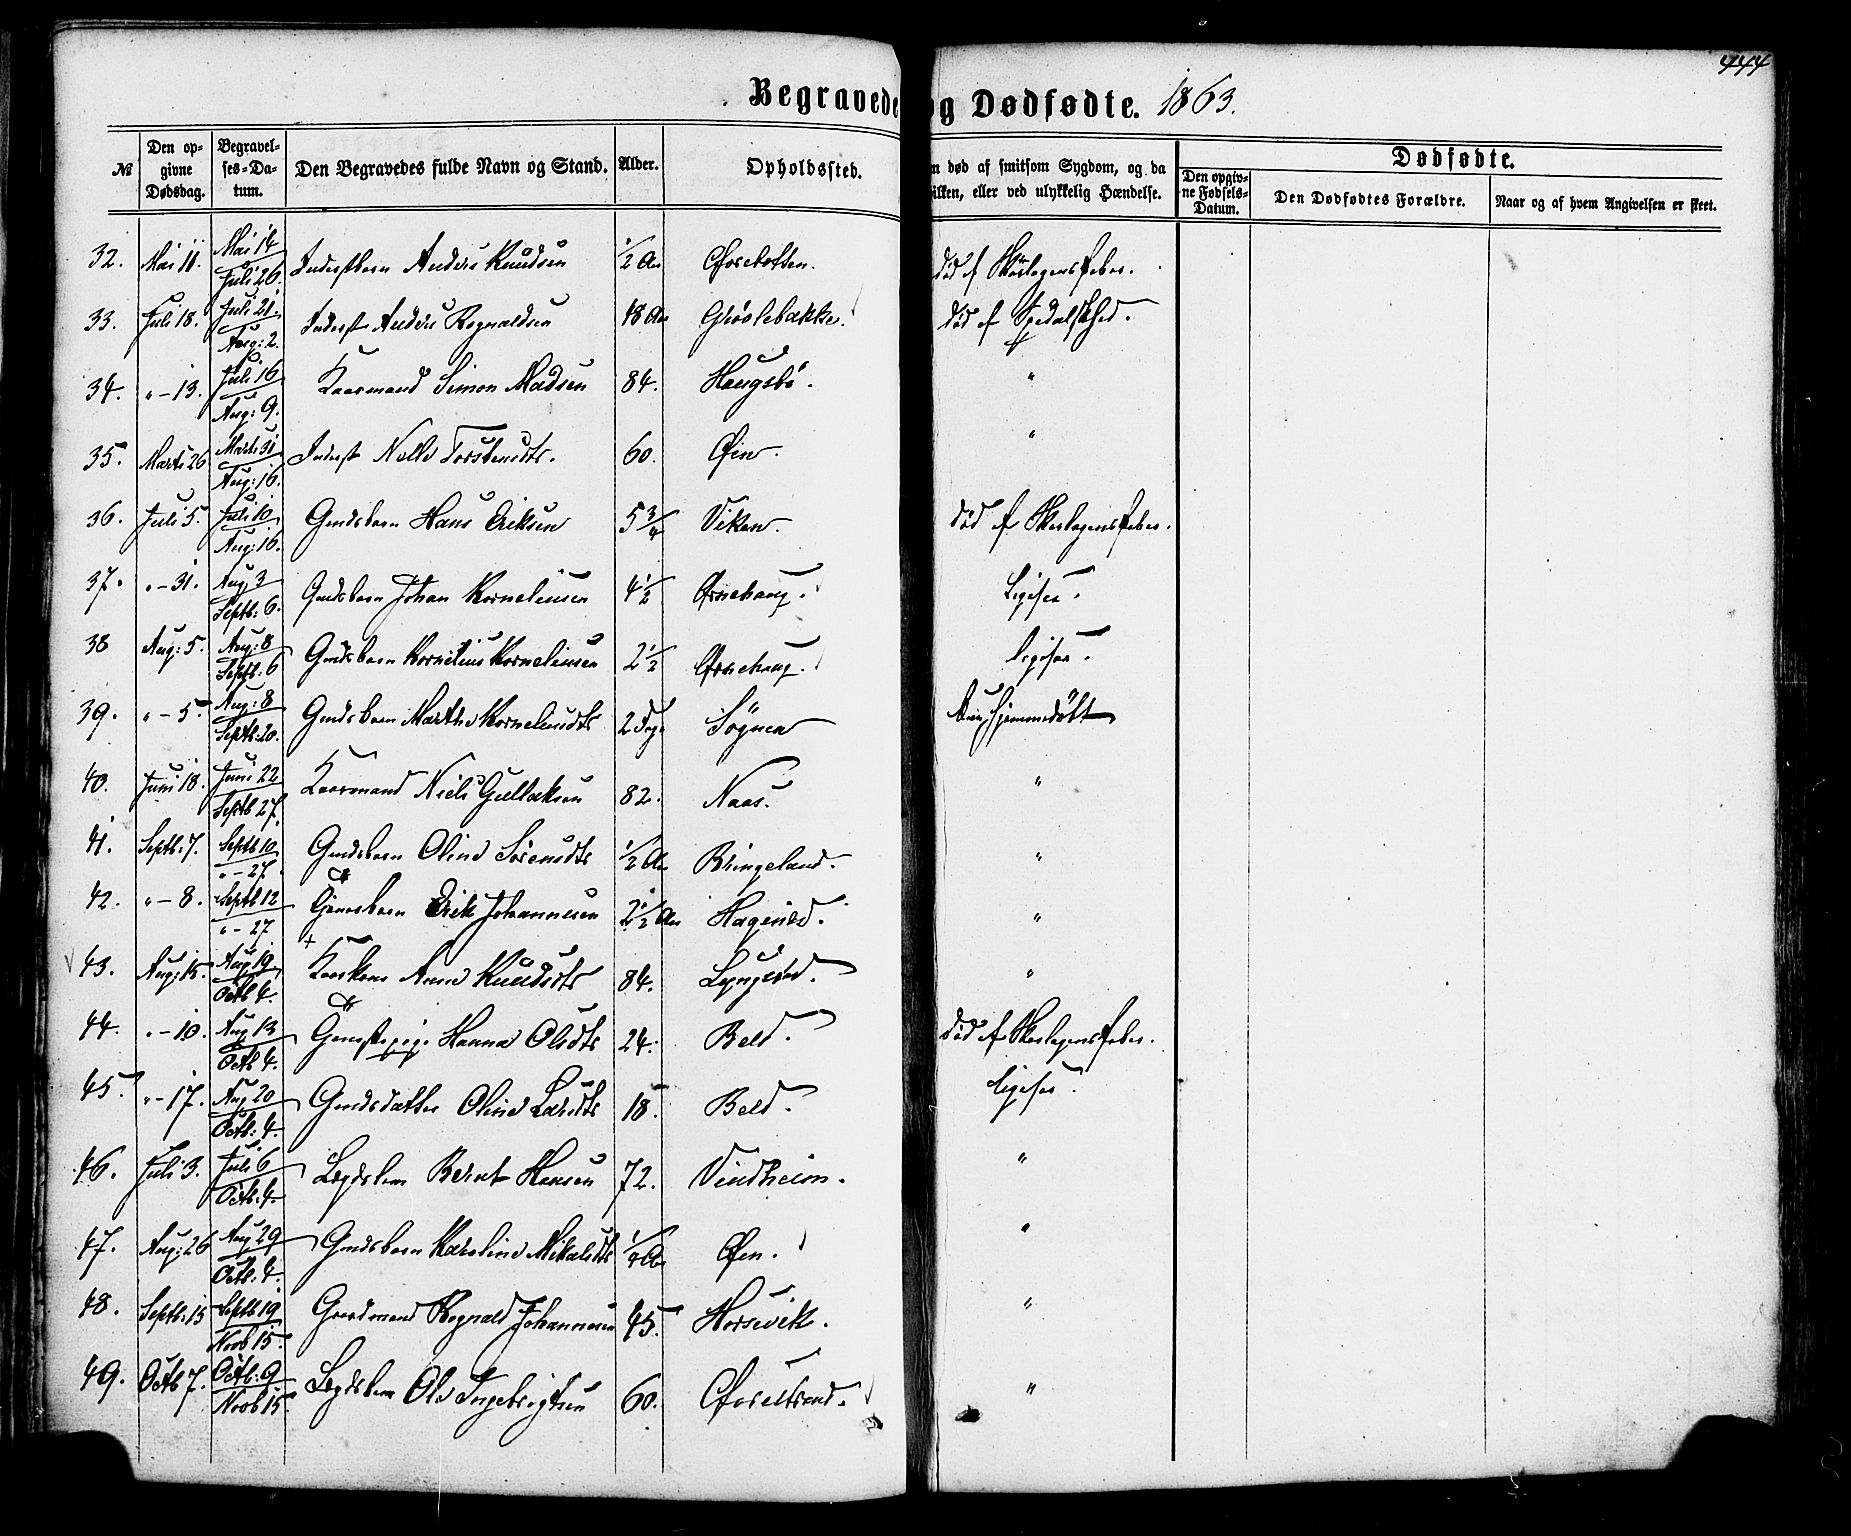 444
Begravede og Dødfødte. 1863.
№ Den opgivne Dødsdag. Begravelses-Datum. Den Begravedes fulde Navn og Stand. Alder. Opholdssted. død af smitsom Sygdom, og da hvilken, eller ved ulykkelig Hændelse. Dødfødte.
Den opgivne Fødsels-Datum. Den Dødfødtes Forældre. Naar og af hvem Angivelsen er skeet.
32. Mai 11. Mai 14 Juli 26. Inderstbarn Anders Knudsen 1/2 Aar død af Skarlagensfeber.
33. Juli 18. Juli 21. Aug: 2. Inderst Anders Rognaldsen 48 Aar død af Spedalskhed.
34. " - 13. Juli 16 Aug: 9. Kaarmand Simon Madsen 84. Haugsbø. "
35. Marts 26 Marts 31 Aug: 16. Inderst Torstensdtr. 60. Øen. "
36. Juli 5. Juli 10. Aug: 16. Gmdsbarn Hans Eriksen 5 3/4 Viken. død af Skarlagensfeber.
37. " - 31. Aug 3 Septb: 6. Gmdsbarn Johan Korneliusen 4 1/2 Ørnehaug. Ligesaa.
38 Aug: 5. Aug: 8 Septb: 6 Gmdsbarn Kornelius Kornelinsen 2 1/2 Ørnehaug. ligesaa.
39. " - 5. Aug: 8 Septb: 20. Gmdsbarn Marthe Korneliusdtr 2 Dage Søgnen hjemmedøbt
40. Juni 18. Juni 22 Septb 27. Kaarmand Niels Gullaksen 82. Naas. "
41. Septb: 7. Septb 10 " - 27. Gmdsbarn Oline Sørensdtr 1/2 Aar Bringeland. "
42. " - 8. Septb 12 " - 27 Erik Johannesen 2 1/2 Aar "
43. Aug: 15. Aug 19 Octb 4. Kaarkone Anne Knudsdtr 84. "
44. " - 10. Aug 13 Octb 4. Hanna Olsdtr 24. død af Skarlagensfeber.
45. " - 17. Aug 20 Octb: 4. Gmdsdatter Oline Larsdtr 18. ligesaa.
46. Juli 3. Juli 6 Octb: 4. Lægdslem Bernt Hansen 72. Vindheim. "
47. Aug: 26 Aug 29 Octb: 4. Gmdsbarn Karoline Mikalsdtr 1/4 Aar Øen. "
48. Septb: 15 Septb 19 Novb 15. Gaardmand Rognald Johannesen 45. Horsevik. "
49. Octb 7. Octb: 9 Novb 15. Lægdslem Ole Ingebrigtsen 60. "